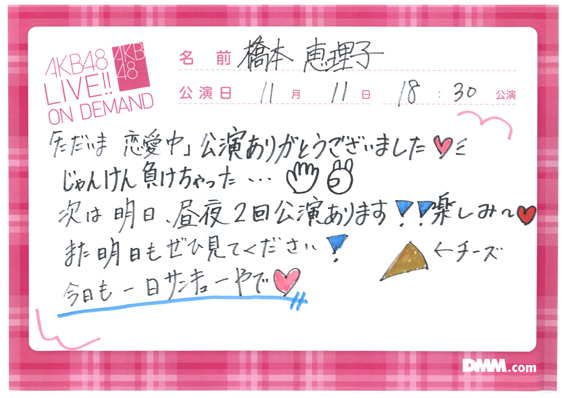 AKB48
LIVE!!
ON DEMAND
AKB
48
名前 橋本 恵理子
公演日 11月 11日 18:30 公演
「ただいま 恋愛中」公演ありがとうございました
じゃんけん負けちゃった…
次は明日、昼夜2回公演あります!!楽しみ〜
また明日もぜひ見てください!
←チーズ
今日も一日サンキューやで
DMM.com